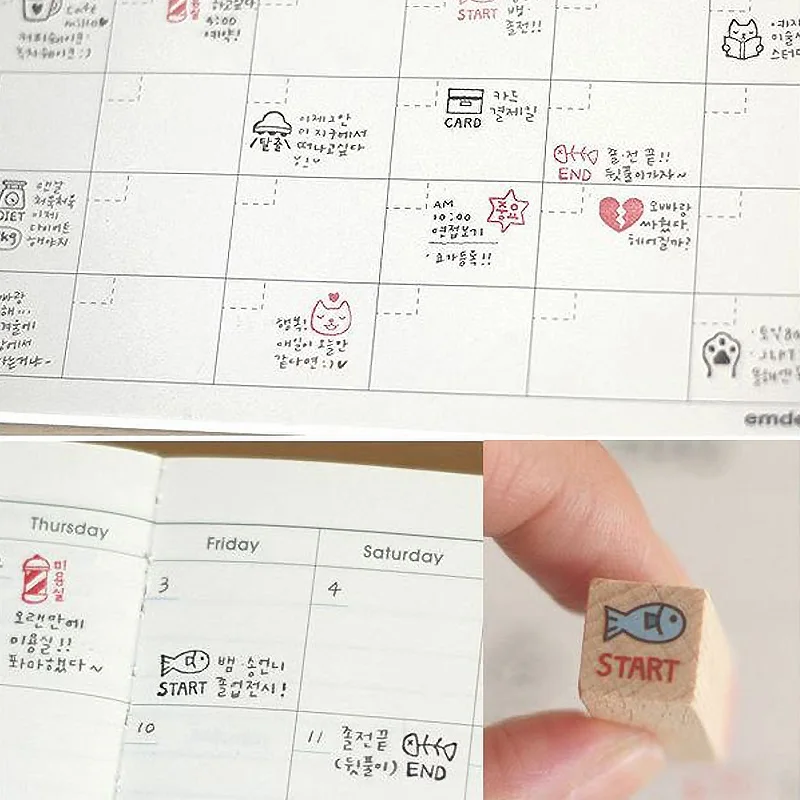 cafe
커피쉐이크
4:00
예약!
START
뱀·
졸전!!
이제그만
이 지구에서
떠나고싶다
탈출
CARD
카드
결제일
END
졸·전 끝!!
뒷풀이가자~
DIET
kg
맨날
처묵처묵
이제
다이어트
해야지
AM
10:00
면접보기
·요가등록!!
중요
오빠랑
싸웠다.
헤어질까?
행복!
매일이 오늘만
같다면 :)♥
emde
Thursday
미용실
오랜만에
미용실!!
파마했다~
Friday
Saturday
3
4
START
뱀·송언니
졸업전시!
10
11
졸전끝
(뒷풀이)
END
START